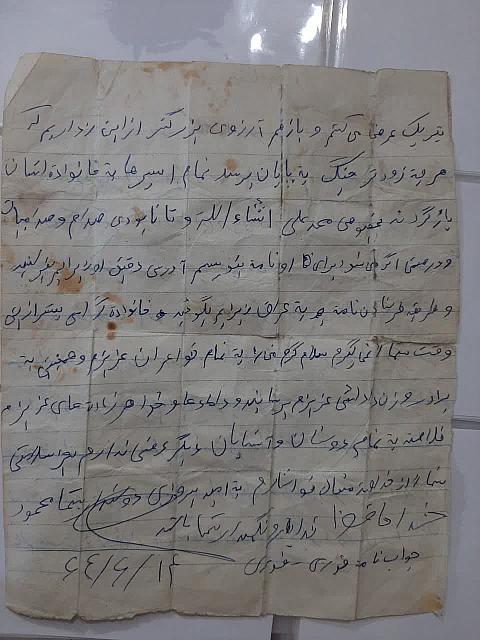 تبریک عرض می کنم و بازهم آرزوی بزرگتر از این نداریم که
هر چه زودتر جنگ به پایان برسد تمام اسیرها به خانواده اشان
بازگردند بخصوص محمد علی انشاء الله و تا نابودی صدام و صدامیان
و در ضمن اگر می شود برای ما او نامه بنویسم آدرس دقیق او را برایم بفرستید
و طریقه فرستادن نامه به عراق برایم بگوئید خانواده گرامی بیشتر از این
وقت شما نمی گیرم سلام گرم مرا به تمام خواهران عزیزم و همچنین به
برادر و زن داداش عزیزم برسانید و دامادها و خواهرزاده های عزیزم
خلاصه به تمامی دوستان و آشنایان دیگر عرضی ندارم بجز سلامتی
شما را از خداوند متعال خواستارم به امید پیروزی شما محمود
خدا حافظ خدا نگهدار شما باشد
جواب نامه فوری فوری
۶۴/۶/۱۴